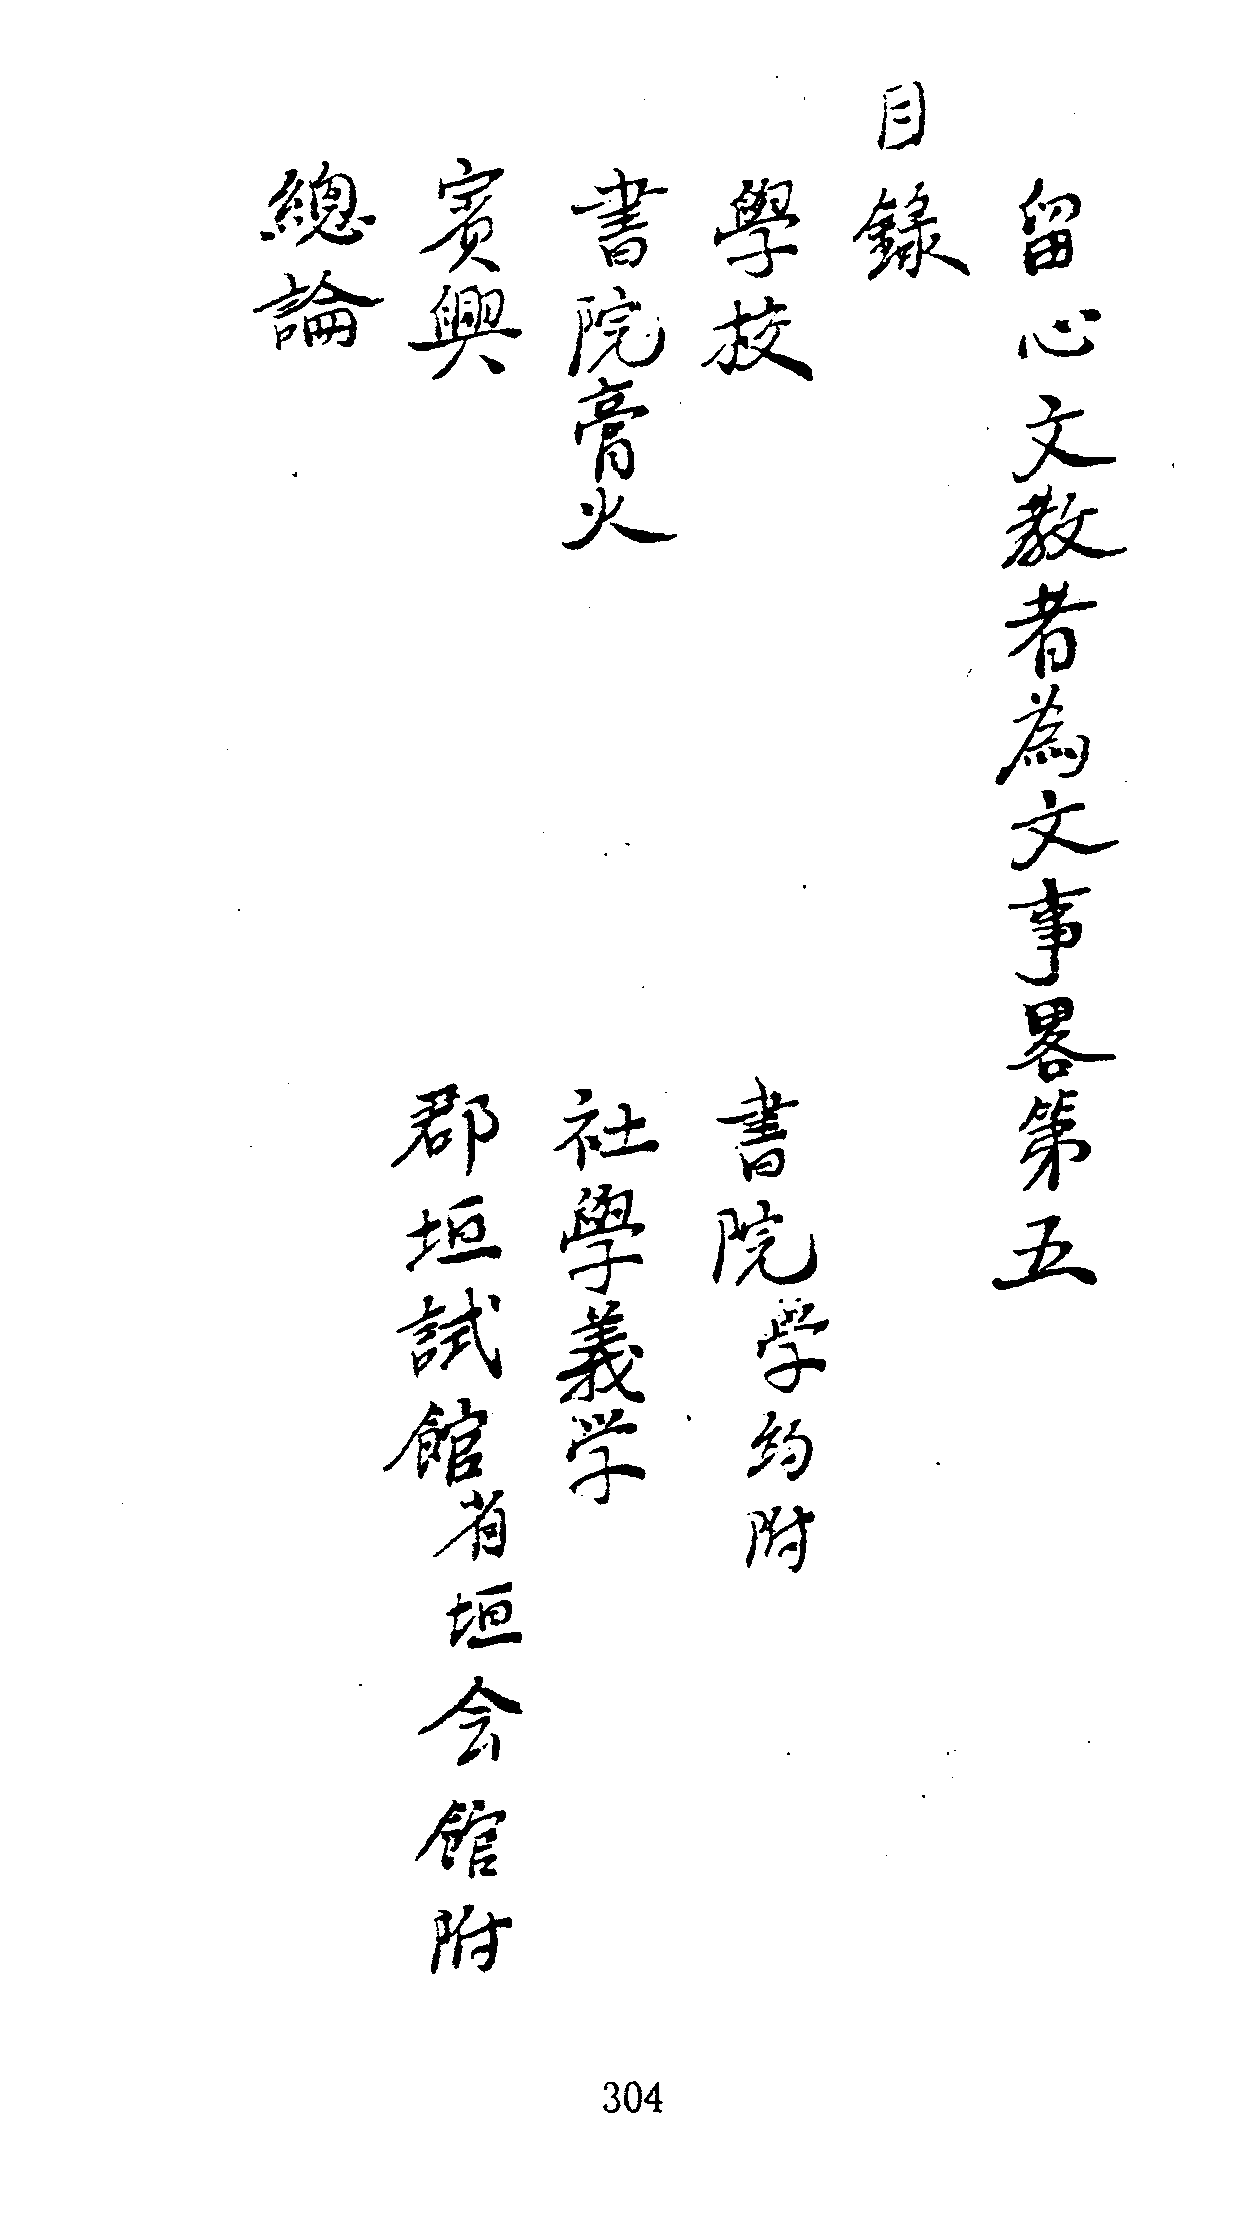 留心文教者為文事畧第五
目錄
學校 書院学約附
書院膏火 社學義学
賓興 郡垣試館省垣会館附
總論
304